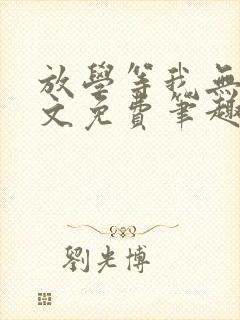 放學等我無
文免費筆趣
劉光博